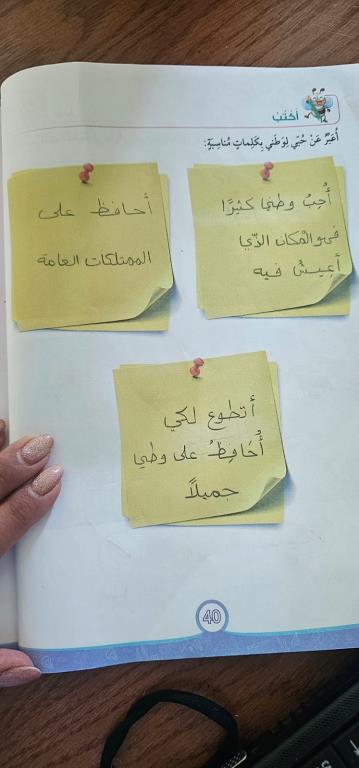 أَكْتُبُ
أُعَبِّرُ عَنْ حُبّي لِوَطَني بِكَلِماتٍ مُناسِبَةٍ:
أُحِبُ وطني كثيرًا
فهو المكان الذّي
أعيشُ فيه
أحافظ على
الممتلكات العامة
أتطوع لكي
أُحَافِظُ على وطني
جميلاً
40